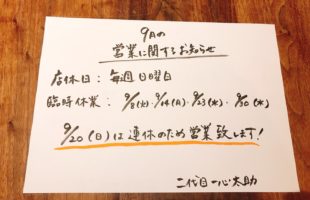 9月の
営業に関するお知らせ
店休日：毎週日曜日
臨時休業：9/8(火)・9/14(月)・9/23(水)・9/30(水)
9/20(日)は連休のため営業致します！
二代目 一心太助